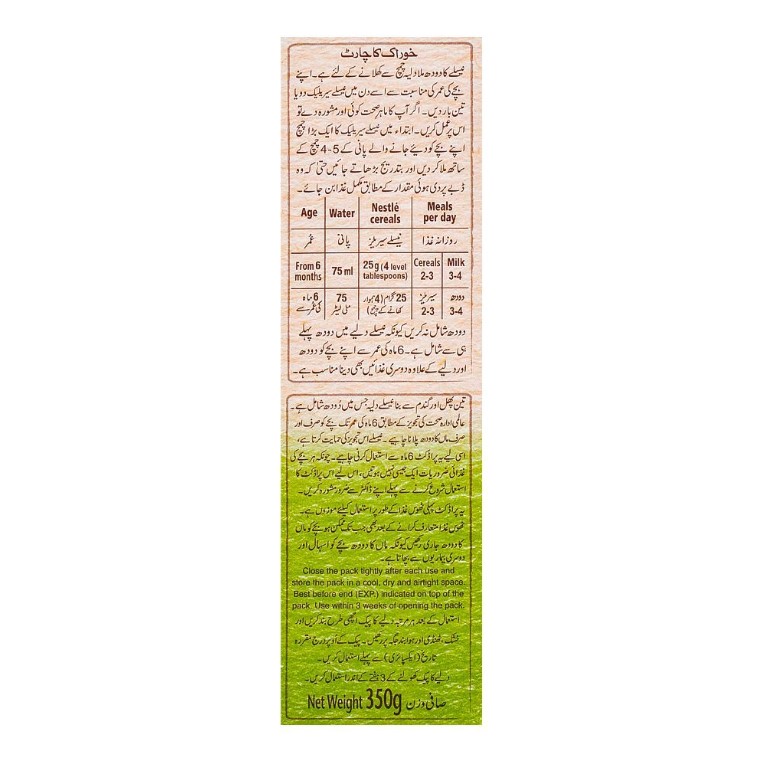 خوراک کا چارٹ
نیسلے کا دودھ ملا دلیہ چمچ سے کھلانے کے لئے ہے۔ اپنے
بچے کی عمر کی مناسبت سے اسے دن میں نیسلے سیریلیک دو یا
تین بار دیں۔ اگر آپ کا ماہر صحت کوئی اور مشورہ دے تو
اس پر عمل کریں۔ ابتداء میں نیسلے سیریلیک کا ایک بڑا چمچ
اپنے بچے کو دیئے جانے والے پانی کے 5-4 چمچ کے
ساتھ ملا کر دیں اور بتدریج بڑھاتے جائیں حتیٰ کہ وہ
ڈبے پر دی ہوئی مقدار کے مطابق مکمل غذا بن جائے۔
Age Water Nestlé cereals Meals per day
عمر پانی نیسلے سیریلز روزانہ غذا
From 6 months 75 ml 25g (4 level tablespoons) Cereals 2-3 Milk 3-4
6 ماہ کی عمر سے 75 ملی لیٹر 25 گرام (4 ہموار کھانے کے چمچ) سیریلز 2-3 دودھ 3-4
دودھ شامل نہ کریں کیونکہ نیسلے دلیے میں دودھ پہلے
ہی سے شامل ہے۔ 6 ماہ کی عمر سے اپنے بچے کو دودھ
اور دلیے کے علاوہ دوسری غذائیں بھی دینا مناسب ہے۔
تین پھل اور گندم سے بنا نیسلے دلیہ جس میں دُودھ شامل ہے۔
عالمی ادارہ صحت کی تجویز کے مطابق 6 ماہ کی عمر تک بچے کو صرف اور
صرف ماں کا دودھ پلانا چاہیے۔ نیسلے اس تجویز کی حمایت کرتا ہے،
اسی لیے یہ پراڈکٹ 6 ماہ سے استعمال کرنی چاہیے۔ چونکہ ہر بچے کی
غذائی ضروریات ایک جیسی نہیں ہوتیں، اس لیے اس پراڈکٹ کا
استعمال شروع کرنے سے پہلے اپنے ڈاکٹر سے ضرور مشورہ کریں۔
یہ پراڈکٹ پہلی ٹھوس غذا کے طور پر استعمال کیلئے موزوں ہے۔
ٹھوس غذا متعارف کرانے کے بعد بھی جب تک ممکن ہو بچے کو ماں
کا دودھ جاری رکھیں کیونکہ ماں کا دودھ بچے کو اسہال اور
دوسری بیماریوں سے بچاتا ہے۔
Close the pack tightly after each use and
store the pack in a cool, dry and airtight space.
Best before end (EXP.) indicated on top of the
pack. Use within 3 weeks of opening the pack.
استعمال کے بعد ہر مرتبہ دلیے کا پیک اچھی طرح بند کریں اور
خشک، ٹھنڈی اور ہوا بند جگہ پر رکھیں۔ پیک کے اُوپر درج مقررہ
تاریخ (ایکسپائری) سے پہلے استعمال کریں۔
دلیے کا پیک کھولنے کے 3 ہفتے کے اندر استعمال کریں۔
Net Weight 350g صافی وزن